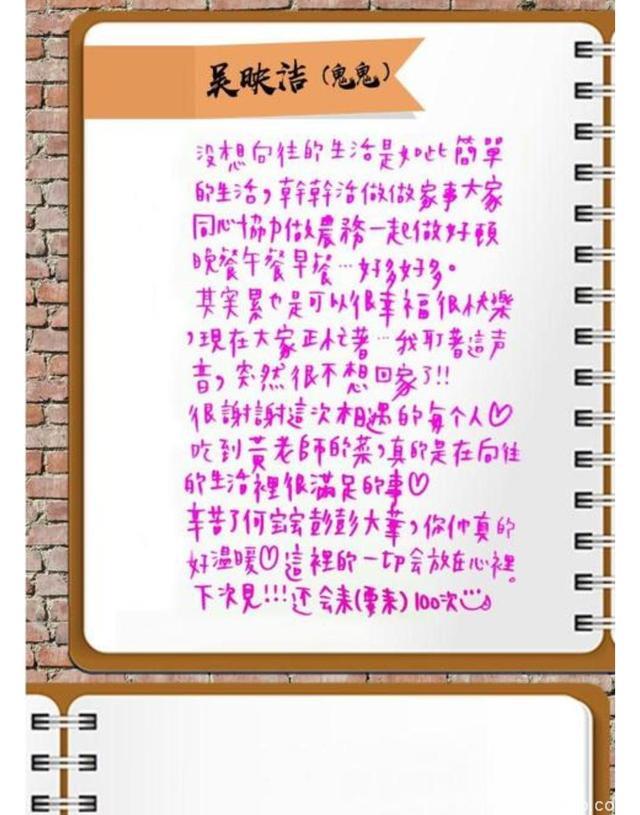 吴映洁（鬼鬼）
没想向往的生活是如此簡單
的生活，幹幹活做做家事大家
同心協力做農務一起做好頓
晚餐午餐早餐…好多好多。
其实累也是可以很幸福很快樂
，現在大家正忙著…我聽著這声
音，突然很不想回家了!!
很謝謝這次相遇的每个人♡
吃到黃老師的菜，真的是在向往
的生活裡很滿足的事♡
辛苦了何 彭彭大華，你们真的
好溫暖♡這裡的一切会放在心裡。
下次見!!!还会来(要来)100次